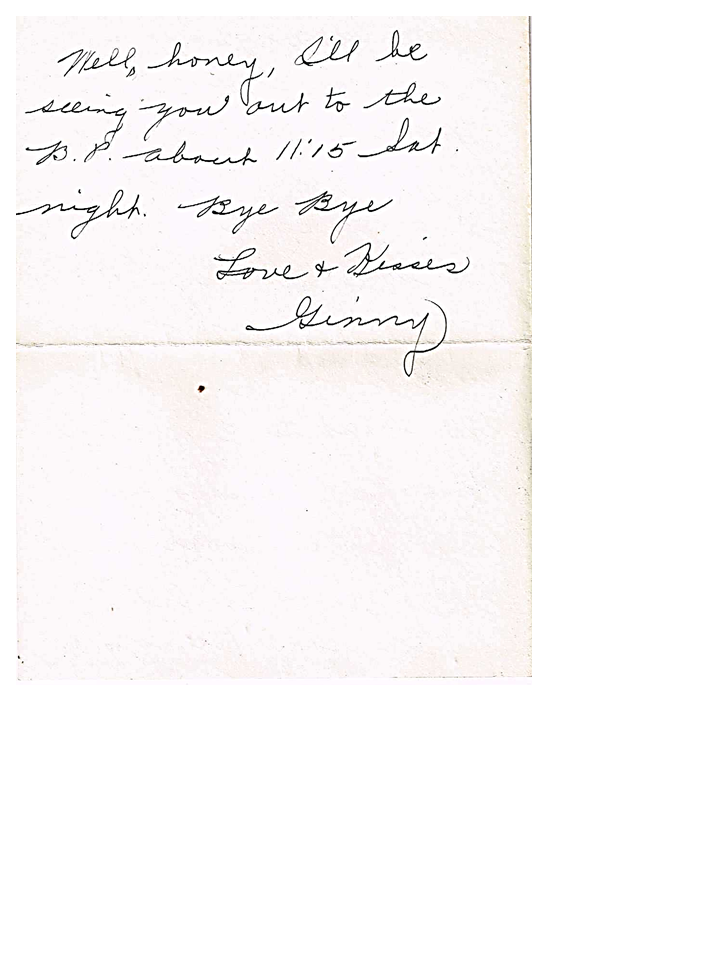 Well, honey, I'll be
seeing you out to the
B. P. about 11:15 Sat.
night. Bye Bye
Love & Kisses
Ginny